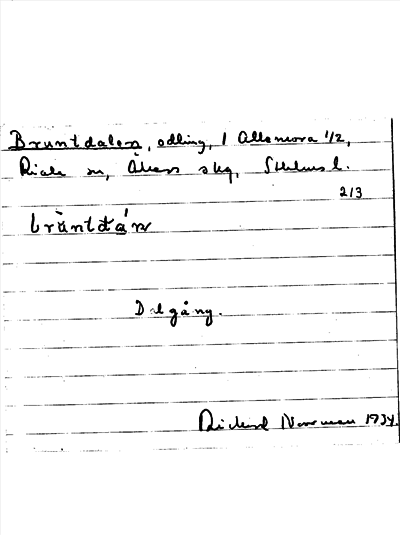 Bruntdalen, odling, / Allmora 1/2,
Riala sn, Åkers skg, Sthlms l.
213
brùntdán
Dægåny.
Rickard Norrman 1934.